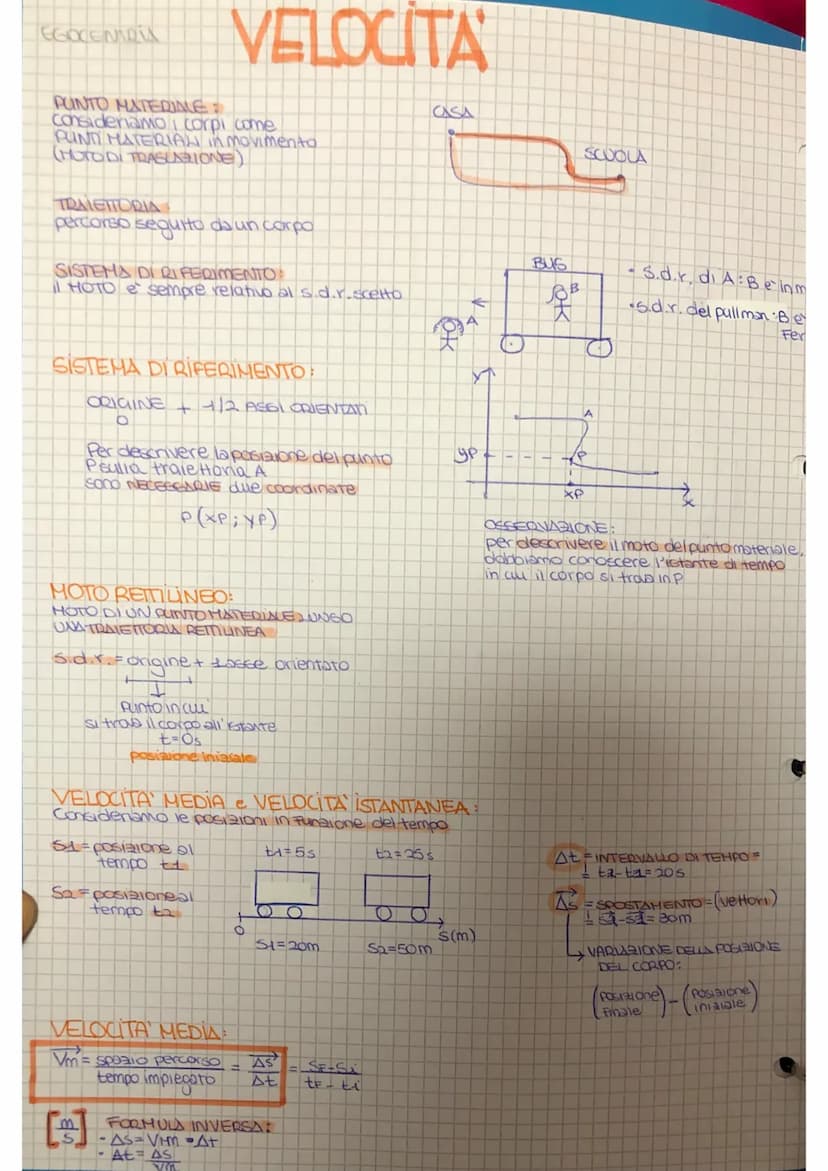 VELOCITA'
PUNTO MATERIALE:
consideriamo i corpi come
PUNTI MATERIALI in movimento
(MOTO DI TRASLAZIONE)
CASA
SCUOLA
TRAIETTORIA
percorso seguito da un corpo
SISTEMA DI RIFERIMENTO:
il MOTO e' sempre relativo al s.d.r. scelto
BUS
B
A
• s.d.r. di A: B e' in m
• s.d.r. del pullman: B e'
Fer
SISTEMA DI RIFERIMENTO:
ORIGINE + 1/2 ASSI ORIENTATI
O
Per descrivere la posizione del punto
P sulla traiettoria A
sono NECESSARIE due coordinate
P(xP; yP)
y
A
yP
P
xP
x
OSSERVAZIONE:
per descrivere il moto del punto materiale,
dobbiamo conoscere l'istante di tempo
in cui il corpo si trova in P
MOTO RETTILINEO:
MOTO DI UN PUNTO MATERIALE LUNGO
UNA TRAIETTORIA RETTILINEA
s.d.r. = origine + 1 asse orientato
Punto in cui
si trova il corpo all'istante
t=0s
posizione iniziale
VELOCITA' MEDIA e VELOCITA' ISTANTANEA:
Consideriamo le posizioni in funzione del tempo
S1 = posizione al
tempo t1
S2 = posizione al
tempo t2
t1=5s
t2=25s
O
S(m)
S1=20m
S2=50m
Δt = INTERVALLO DI TEMPO =
t2-t1= 20s
Δs = SPOSTAMENTO = (vettori)
= 30m
VARIAZIONE DELLA POSIZIONE
DEL CORPO:
(posizione finale) - (posizione iniziale)
VELOCITA' MEDIA:
Vm = spazio percorso / tempo impiegato = Δs / Δt = SF-Si / tF-ti
[m/s] FORMULA INVERSA:
- Δs = Vm • Δt
- Δt = Δs / Vm